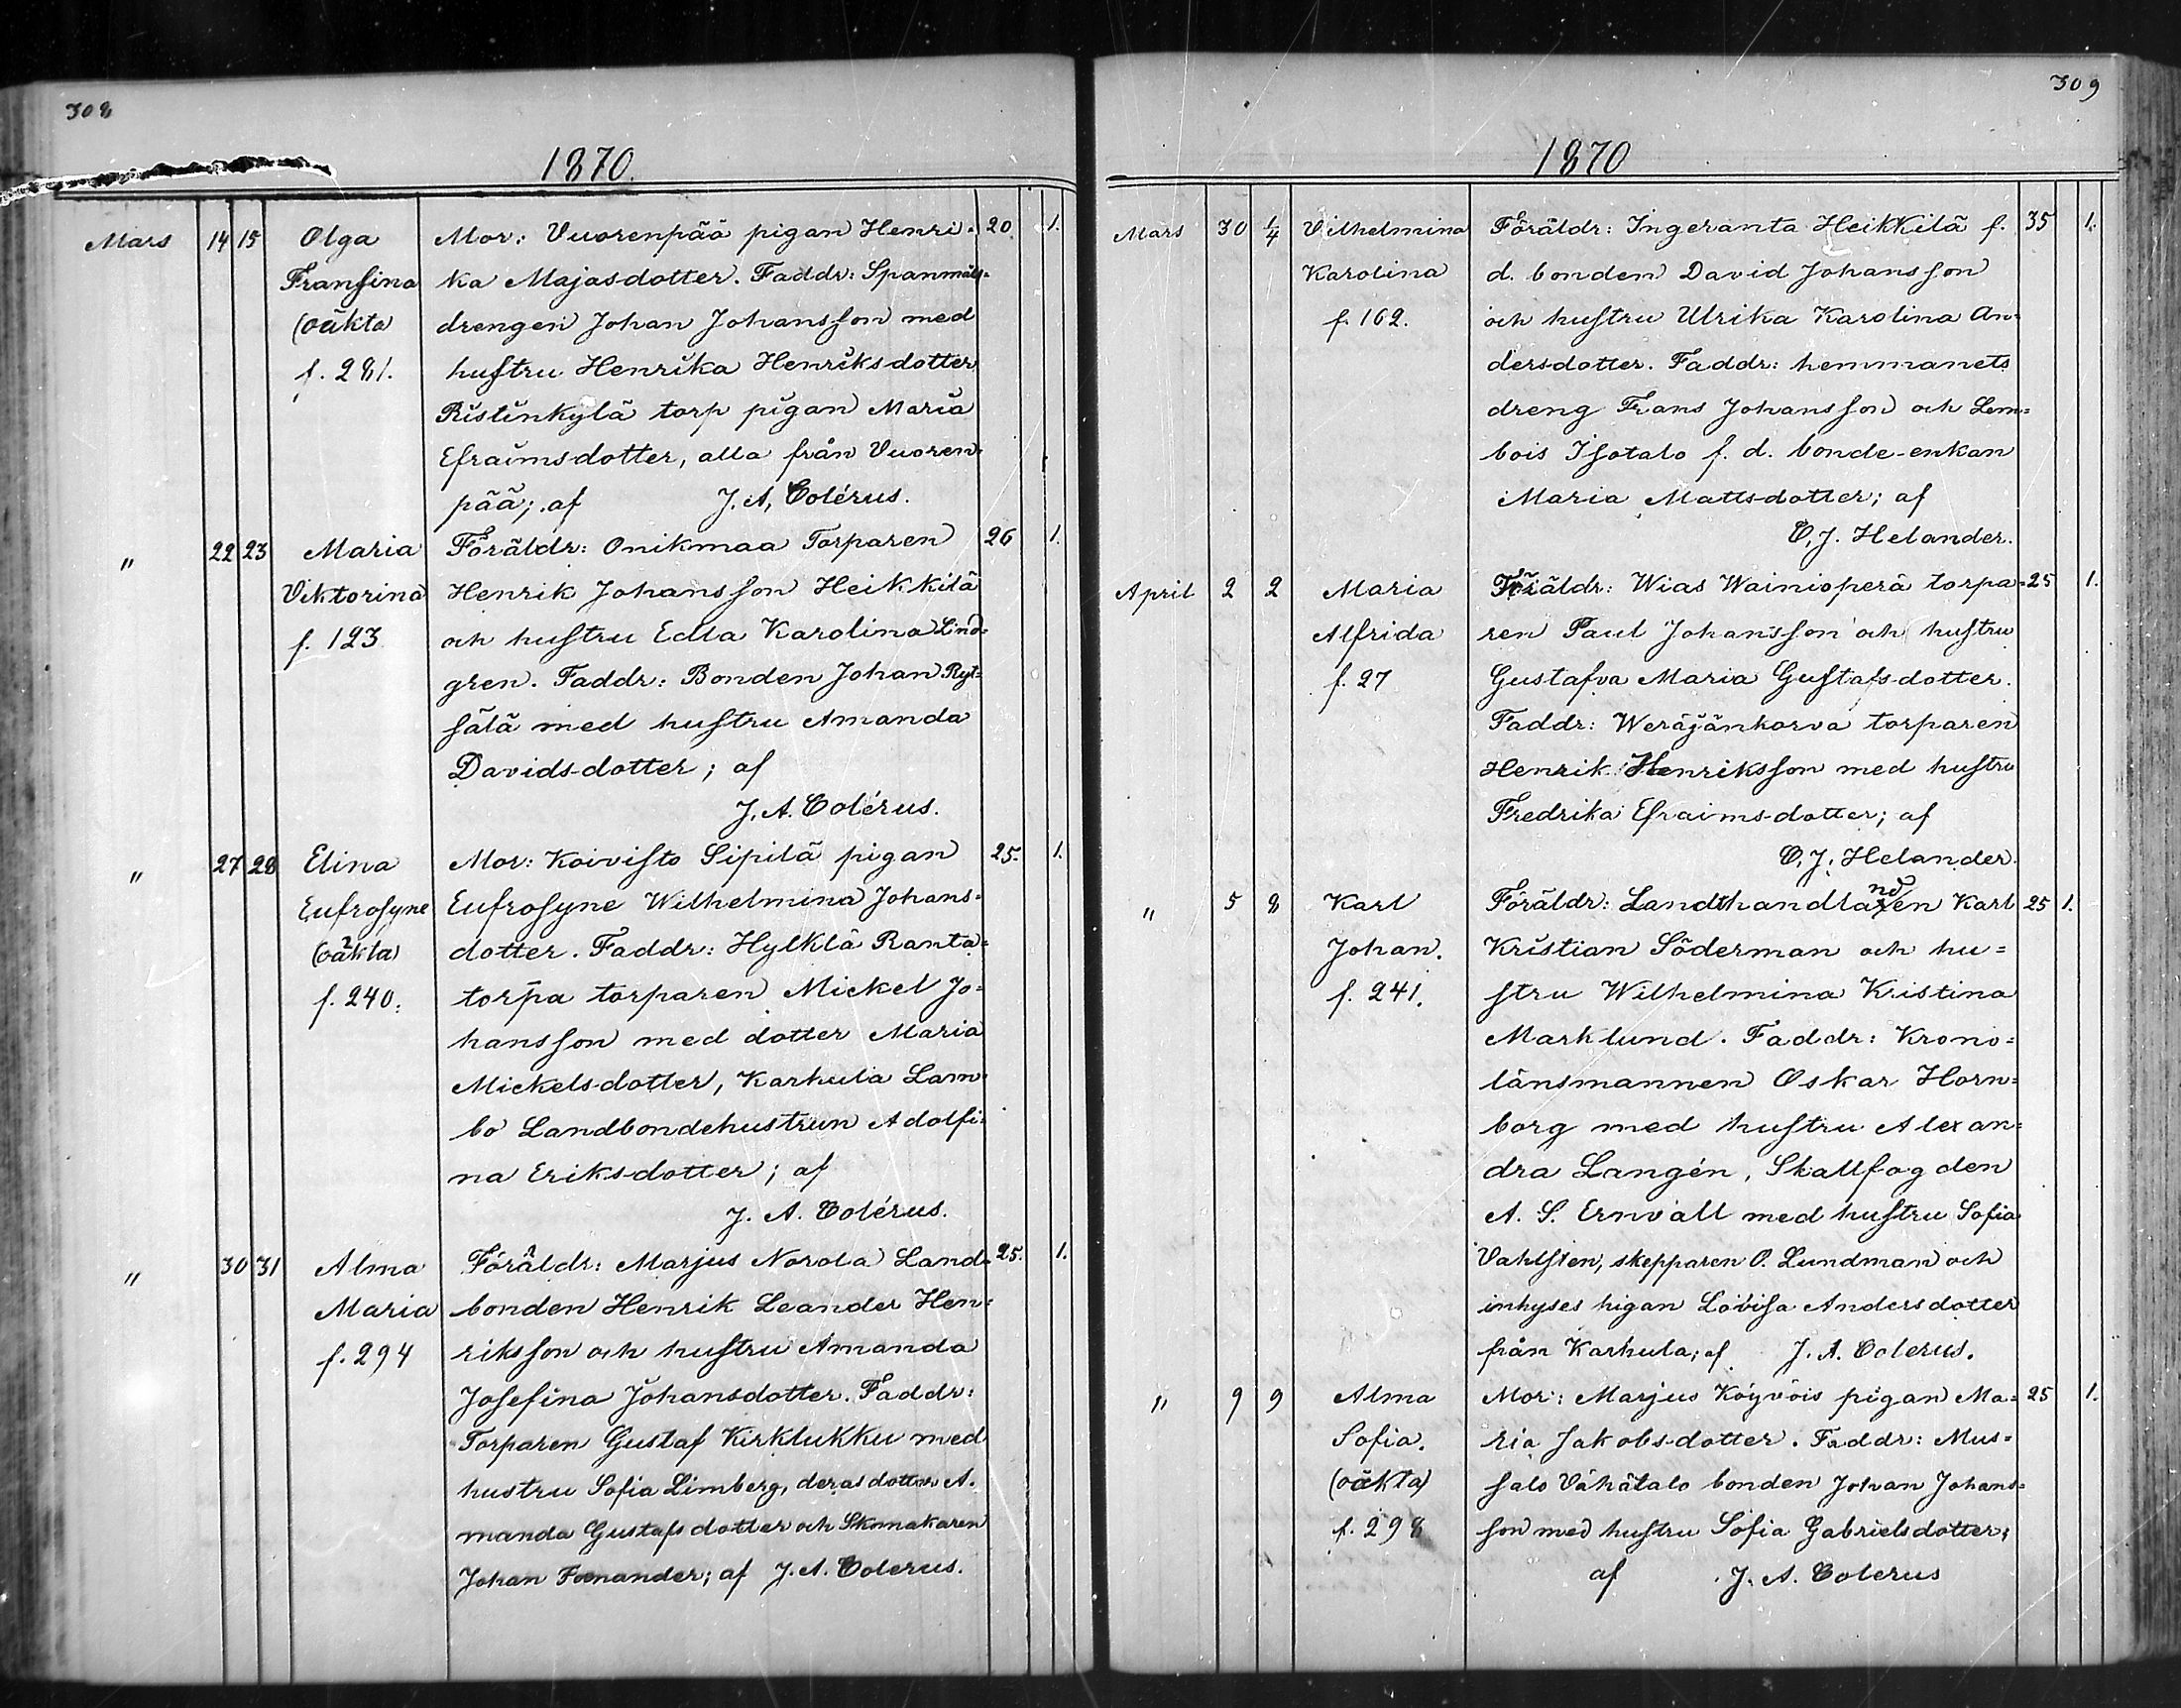 308
1870.
Mars 14 15 Olga Mor: Vuorenpää pigan Henri- 20. 1.
Fransina ka Majasdotter. Faddr: Spanmåls-
(oäkta) drengen Johan Johansson med
f. 281. hustru Henrika Henriksdotter
Ristinkylä torp pigan Maria
Efraimsdotter, alla från Vuoren-
pää; af J. A. Colérus.
" 22 23 Maria Föräldr: Onikmaa Torparen 26 1.
Viktorina Henrik Johansson Heikkilä
f. 123 och hustru Edla Karolina Lind-
gren. Faddr: Bonden Johan Ryt-
sälä med hustru Amanda
Davids-dotter; af
J. A. Colérus.
" 27 28 Elina Mor: Koivisto Sipilä pigan 25. 1.
Eufrosyne Eufrosyne Wilhelmina Johans=
(oäkta) dotter. Faddr: Hylklä Ranta=
f. 240. torpa torparen Mickel Jo-
hansson med dotter Maria
Mickels-dotter, Karhula Lam-
bo Landbondehustrun Adolfi-
na Eriks-dotter; af
J. A. Colérus.
" 30 31 Alma Föräldr: Marjus Norola Land- 25. 1.
Maria bonden Henrik Leander Hen=
f. 294 riksson och hustru Amanda
Josefina Johansdotter. Faddr:
Torparen Gustaf Kirklukku med
hustru Sofia Limberg, deras dotter A.
manda Gustafsdotter och Skomakaren
Johan Fornander; af J. A. Colerus.
309
1870
Mars 30 1/4 Vilhelmina Föräldr: Ingeranta Heikkilä f. 35 1.
Karolina d. bonden David Johansson
f. 162. och hustru Ulrika Karolina An-
dersdotter. Faddr: hemmanets
dreng Frans Johansson och Lem=
bois Isotalo f. d. bonde-enkan
Maria Matts-dotter; af
C. J. Helander.
April 2 2 Maria Föräldr: Wias Wainioperä torpa- 25 1.
Alfrida ren Paul Johansson och hustru
f. 27 Gustafva Maria Gustafs-dotter.
Faddr: Weräjänkorva torparen
Henrik Henriksson med hustru
Fredrika Efraims-dotter; af
C. J. Helander.
nd
" 5 8 Karl Föräldr: Landthandlaren Karl 25 1.
Johan. Kristian Söderman och hu=
f. 241. stru Wilhelmina Kristina
Marklund. Faddr: Krono=
länsmannen Oskar Horn=
borg med hustru Alexan=
dra Langén, Skallfogden
A. S. Ernvall med hustru Sofia
Vahlsten, skepparen O. Lundman och
inhyses pigan Lovisa Andersdotter
från Karhula; af J. A. Colerus.
" 9 9 Alma Mor: Marjus Köyvöis pigan Ma= 25 1.
Sofia. ria Jakobs-dotter. Faddr: Mus=
(oäkta) salo Vähätalo bonden Johan Johans=
f. 298 son med hustru Sofia Gabrielsdotter;
af J. A. Colerus